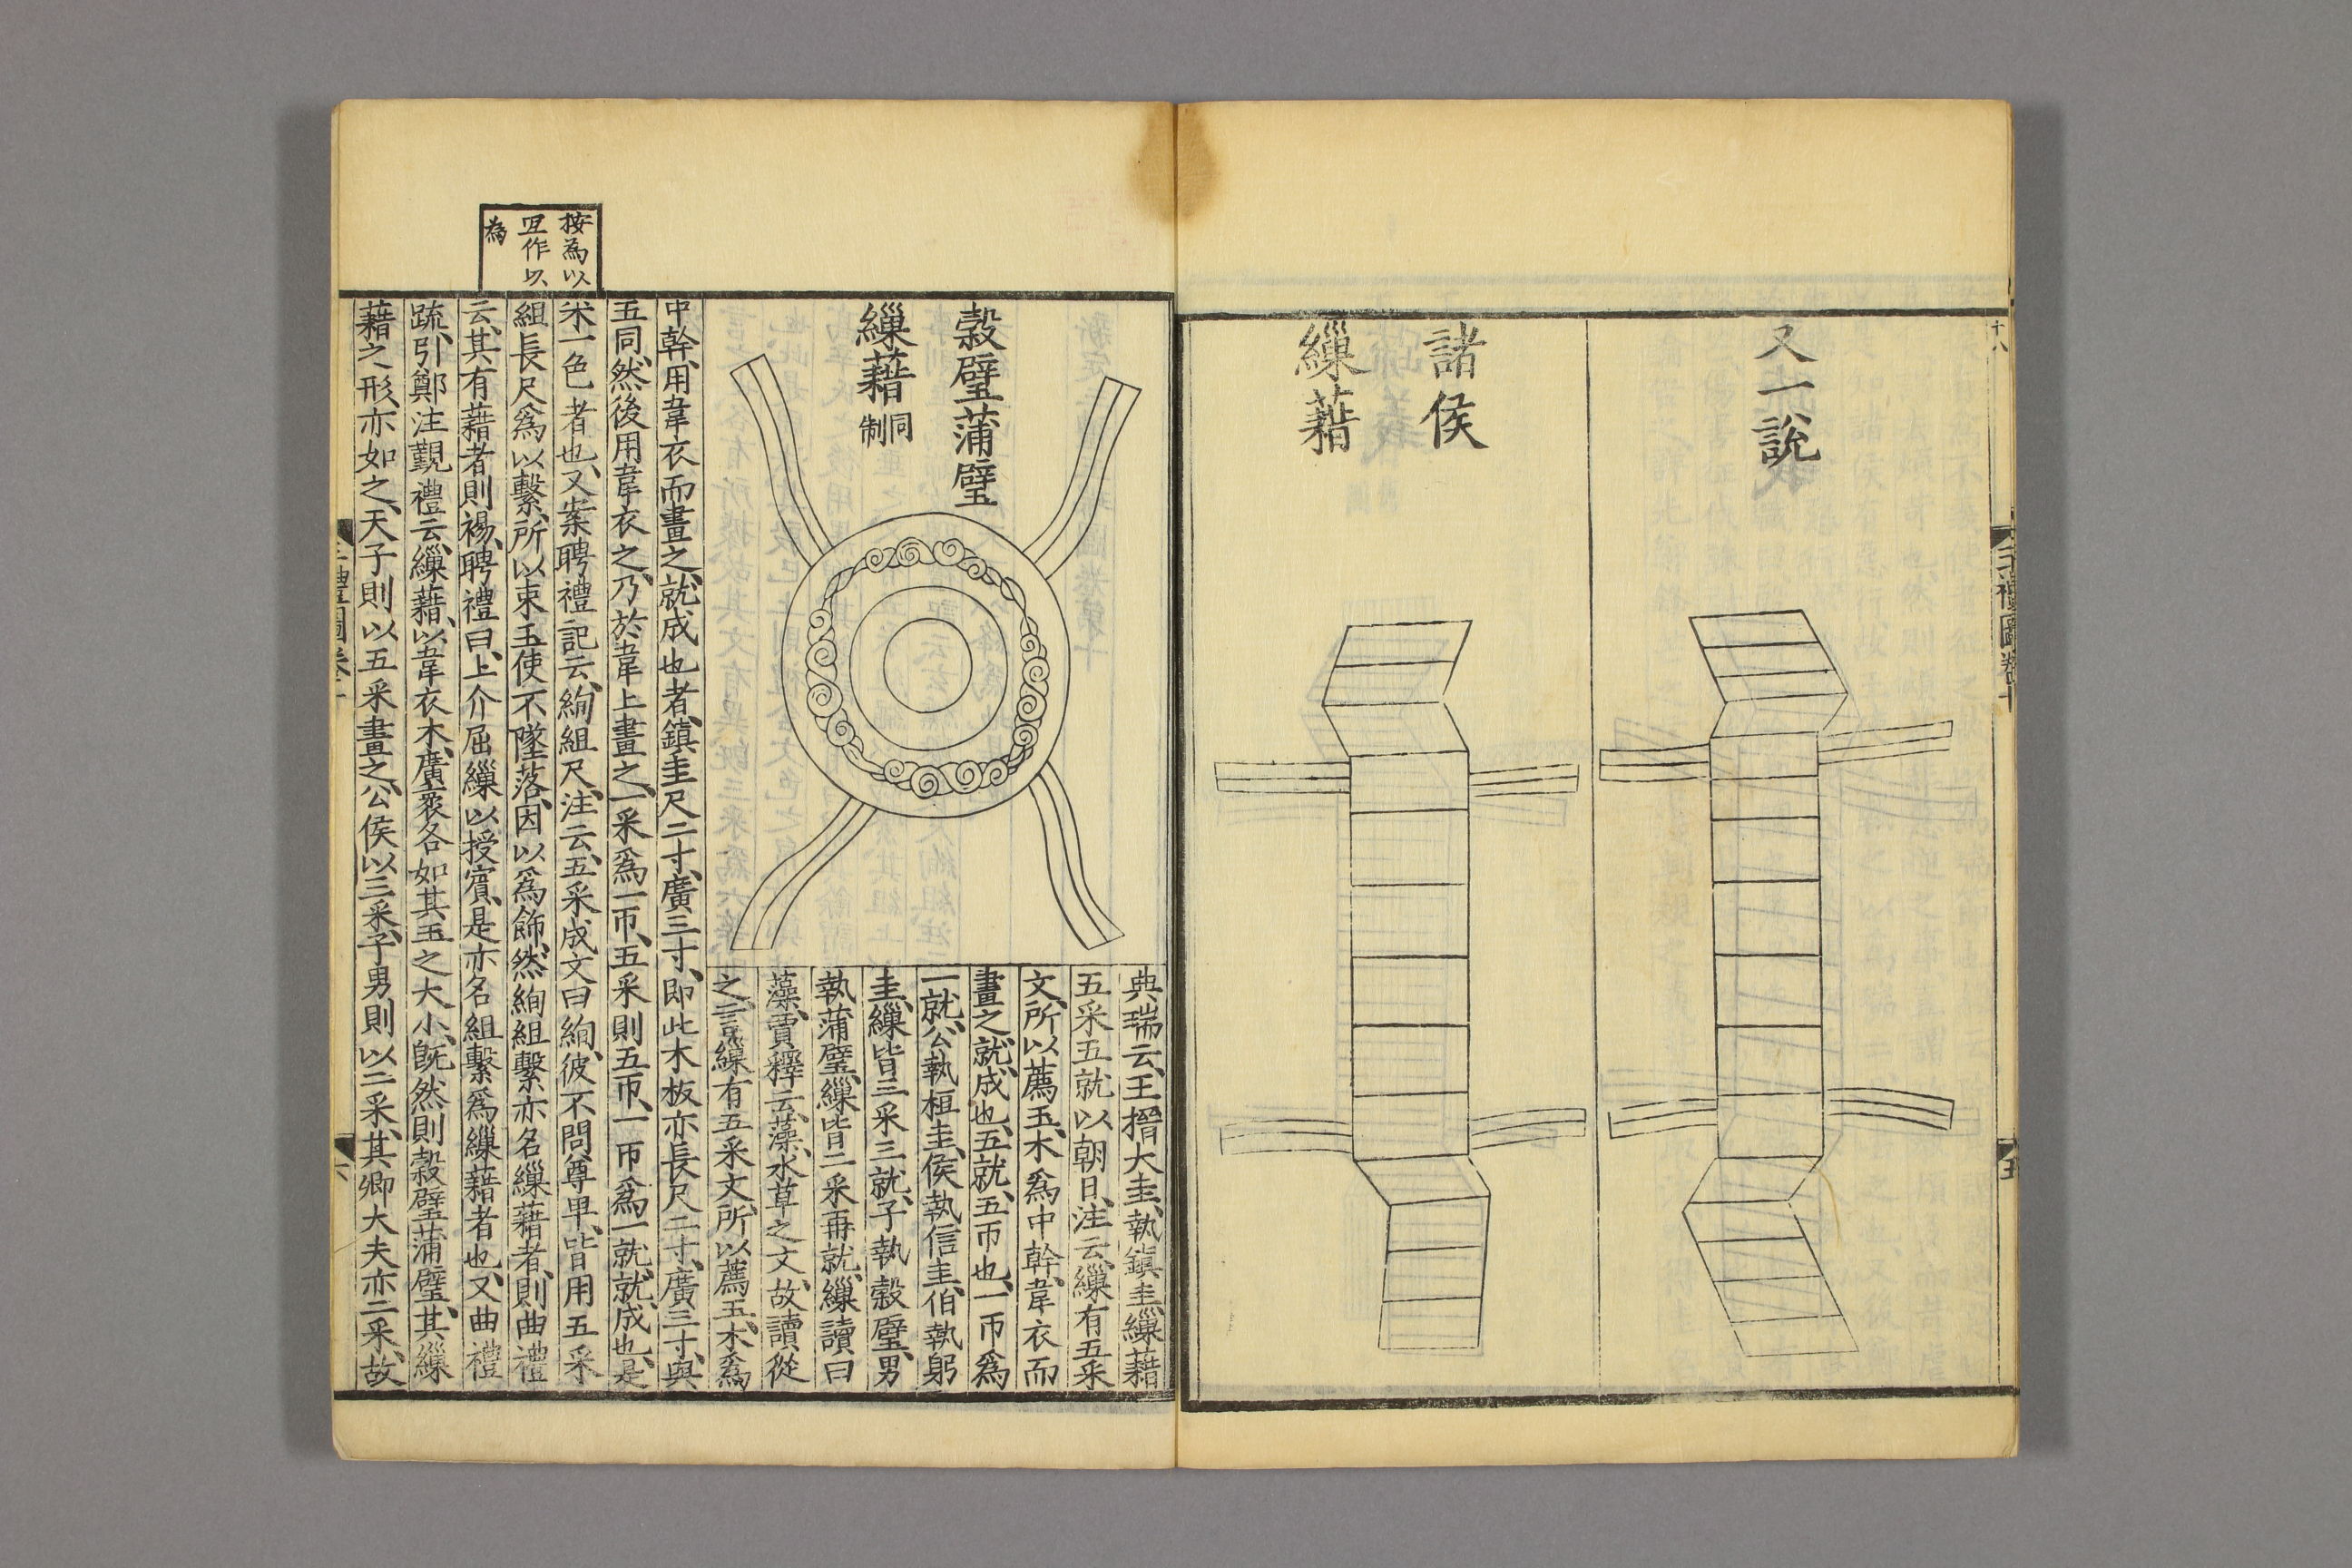 又一說
諸侯
繅藉
三禮圖卷十
五
穀璧蒲璧
繅藉同制
典瑞云、王搢大圭、執鎮圭、繅藉
五采五就以朝日、注云、繅有五采
文、所以薦玉、木爲中幹、韋衣而
畫之、就、成也、五就、五帀也、一帀爲
一就、公執桓圭、侯執信圭、伯執躬
圭、繅皆三采三就、子執穀璧、男
執蒲璧、繅皆二采再就、繅讀曰
藻、賈釋云、藻、水草之文、故讀從
之、言繅有五采文、所以薦玉、木爲
中幹、用韋衣而畫之、就成也者、鎮圭尺二寸、廣三寸、即此木板亦長尺二寸、廣三寸、與
玉同、然後用韋衣之、乃於韋上畫之、一采爲一帀、五采則五帀、一帀爲一就、就、成也、是
采一色者也、又案聘禮記云、絢組尺、注云、五采成文曰絢、彼不問尊卑、皆用五采
組長尺爲以繫、所以束玉使不墜落、因以爲飾、然絢組繫亦名繅藉者、則曲禮
云、其有藉者則裼、聘禮曰、上介屈繅以授賓、是亦名組繫爲繅藉者也、又曲禮
疏、引鄭注覲禮云、繅藉、以韋衣木、廣袤各如其玉之大小、既然則穀璧蒲璧、其繅
藉之形、亦如之、天子則以五采畫之、公侯以三采、子男則以二采、其卿大夫亦二采、故
按爲以
宜作以
為
六